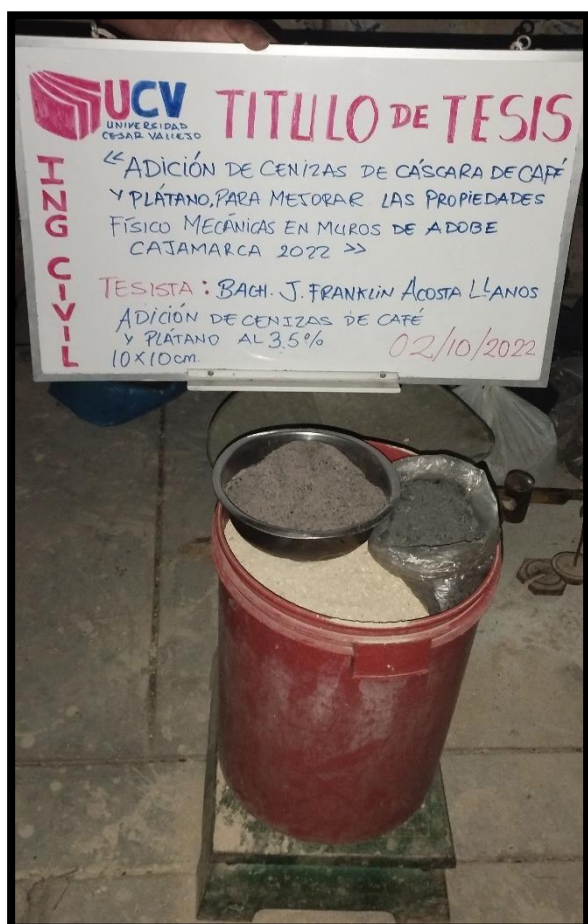 UCV
UNIVERSIDAD
CESAR VALLEJO
TITULO DE TESIS
ING CIVIL
“ADICIÓN DE CENIZAS DE CÁSCARA DE CAFÉ
Y PLÁTANO, PARA MEJORAR LAS PROPIEDADES
FÍSICO MECÁNICAS EN MUROS DE ADOBE
CAJAMARCA 2022”
TESISTA: BACH. J. FRANKLIN ACOSTA LLANOS
ADICIÓN DE CENIZAS DE CAFÉ
Y PLÁTANO AL 3.5%
10X10cm.
02/10/2022